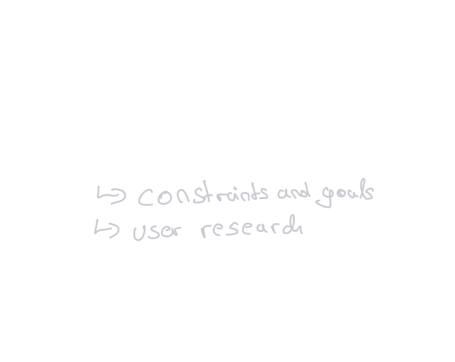 ↳ constraints and goals
↳ user research